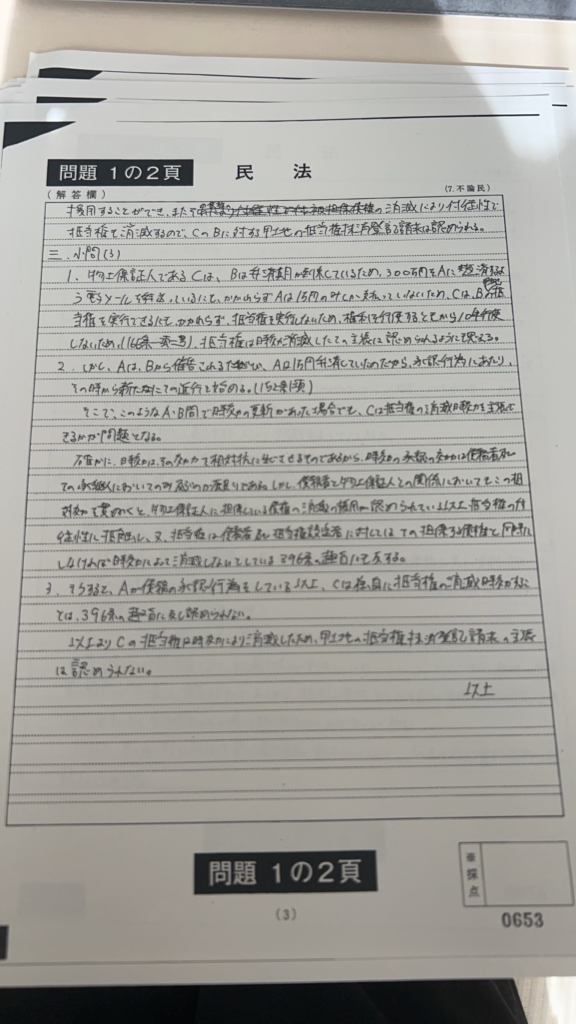 問題 1の2頁 民法
(解答欄) (7.不論民)
援用することができ、またての消滅により付従性で
抵当権も消滅するので、CのBに対する甲土地の抵当権抹消登記請求は認められる。
三.小問(3)
1.物上保証人であるCは、Bは弁済期が到来しているため、300万円をAに
う電子メールを送っているにも、かかわらずAは15万円のみしか支払っていないため、CはB
当権を実行できるにも、かかわらず、抵当権を実行しないため、権利を行使するときから10年行使
しないため、(166条一項二号)、抵当権は時効が消滅したとの主張は認められるように思える。
2.しかし、Aは、Bから催告された、A15万円弁済していたのだから、承認行為にあたり、
その時から新たにその進行を始める。(152条1項)
そこで、このようなA・B間で時効の更新があった場合でも、Cは抵当権の消滅時効を主張で
きるかが問題となる。
確かに、時効は、その効力で相対抗に生じさせるものであるから、時効の承認の効力は債務者及
びその承継人においてのみ
しかし、債務者と物上保証人との関係においてもこの相
対効を貫ぬくと、物上保証人に担保している債権の消滅の援用が認められてしまい以上抵当権の付
従性に抵触し、又、抵当権は債務者及び抵当権設定者に対してはその担保する債権と同時に
しなければ時効によって消滅しないとしている396条の趣旨にも反する。
3.そうすると、Aが債務の承認行為をしている以上、Cは独自に抵当権の消滅時効がするこ
とは、396条の趣旨に反し認められない。
以上よりCの抵当権は時効により消滅したため、甲土地の抵当権抹消登記請求の主張
は認められない。
以上
問題 1の2頁
(3)
※採点
0653